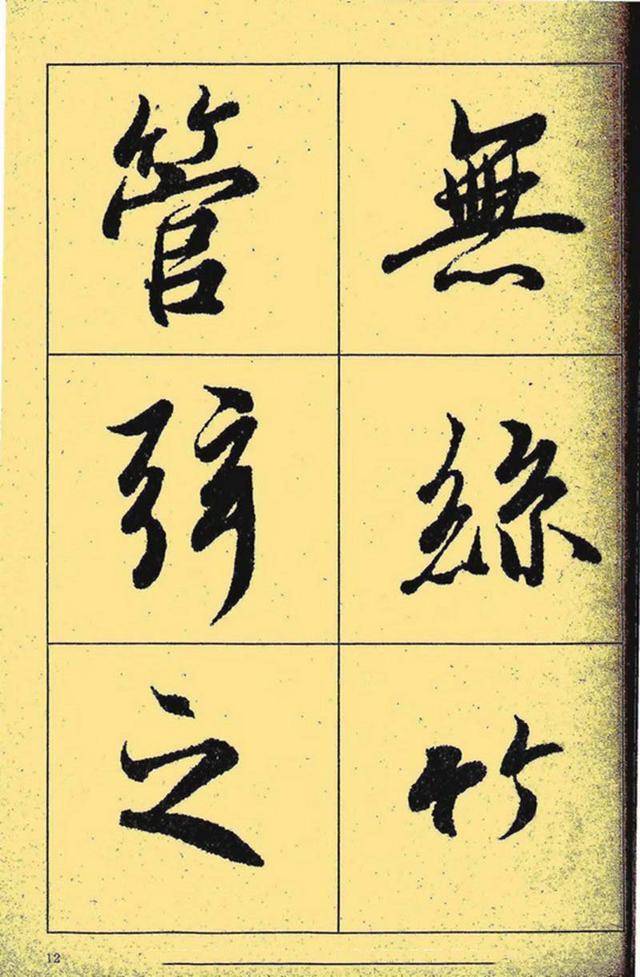 無絲竹
管弦之
12